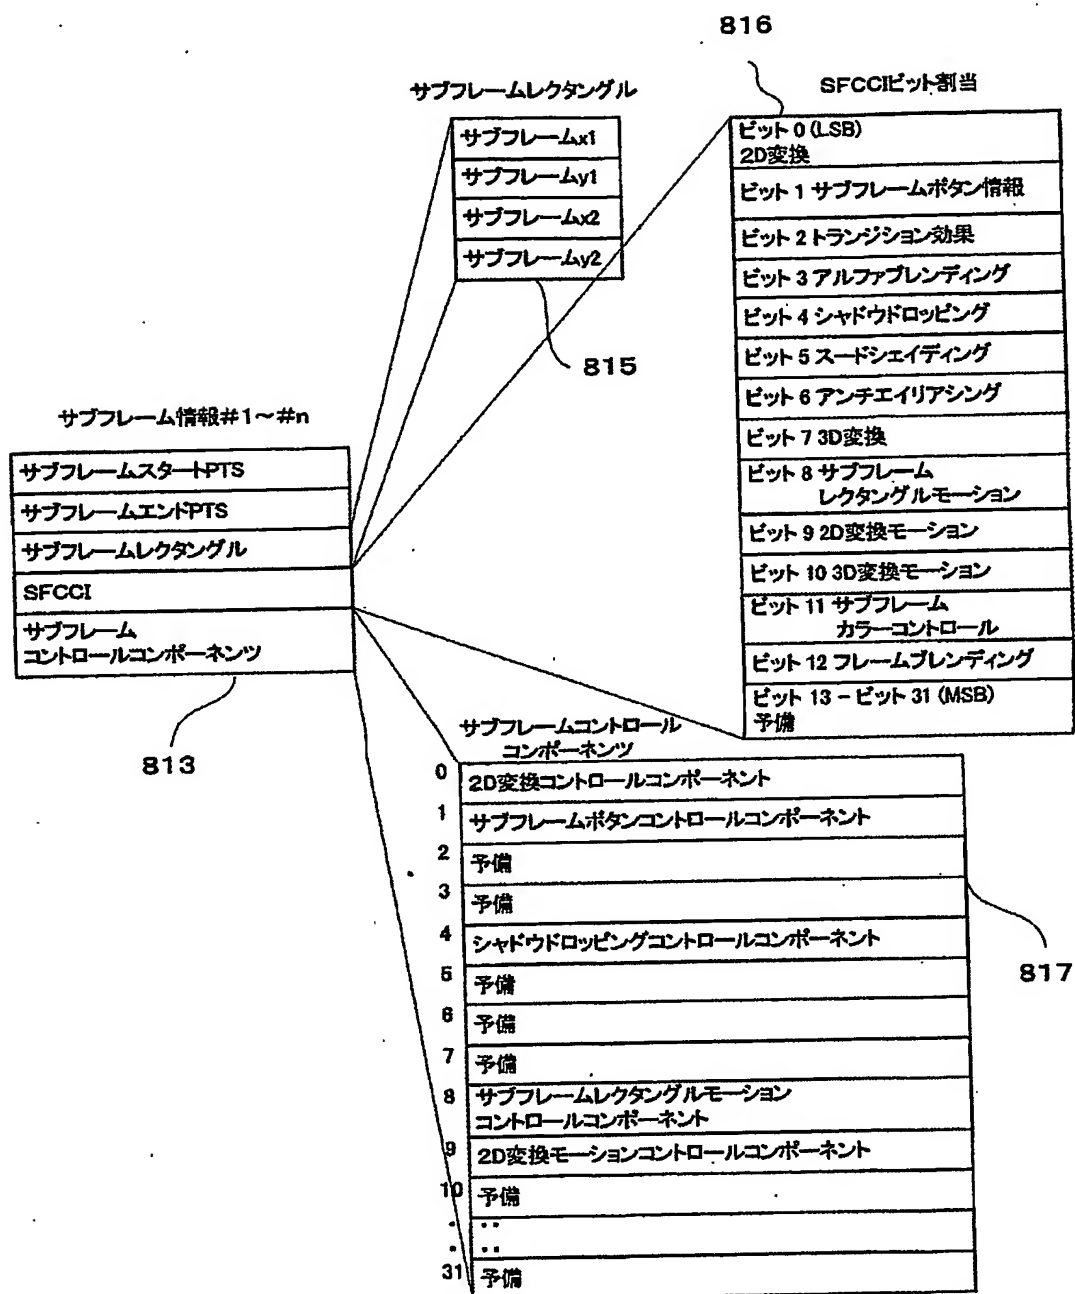 816
サブフレームレクタングル
サブフレームx1
サブフレームy1
サブフレームx2
サブフレームy2
815
SFCCIビット割当
ビット 0 (LSB)
2D変換
ビット 1 サブフレームボタン情報
ビット 2 トランジション効果
ビット 3 アルファブレンディング
ビット 4 シャドウドロッピング
ビット 5 スードシェイディング
ビット 6 アンチエイリアシング
ビット 7 3D変換
ビット 8 サブフレーム
レクタングルモーション
ビット 9 2D変換モーション
ビット 10 3D変換モーション
ビット 11 サブフレーム
カラーコントロール
ビット 12 フレームブレンディング
ビット 13 − ビット 31 (MSB)
予備
サブフレーム情報#1〜#n
サブフレームスタートPTS
サブフレームエンドPTS
サブフレームレクタングル
SFCCI
サブフレーム
コントロールコンポーネンツ
813
サブフレームコントロール
コンポーネンツ
0 2D変換コントロールコンポーネント
1 サブフレームボタンコントロールコンポーネント
2 予備
3 予備
4 シャドウドロッピングコントロールコンポーネント
5 予備
6 予備
7 予備
8 サブフレームレクタングルモーション
コントロールコンポーネント
9 2D変換モーションコントロールコンポーネント
10 予備
31 予備
817